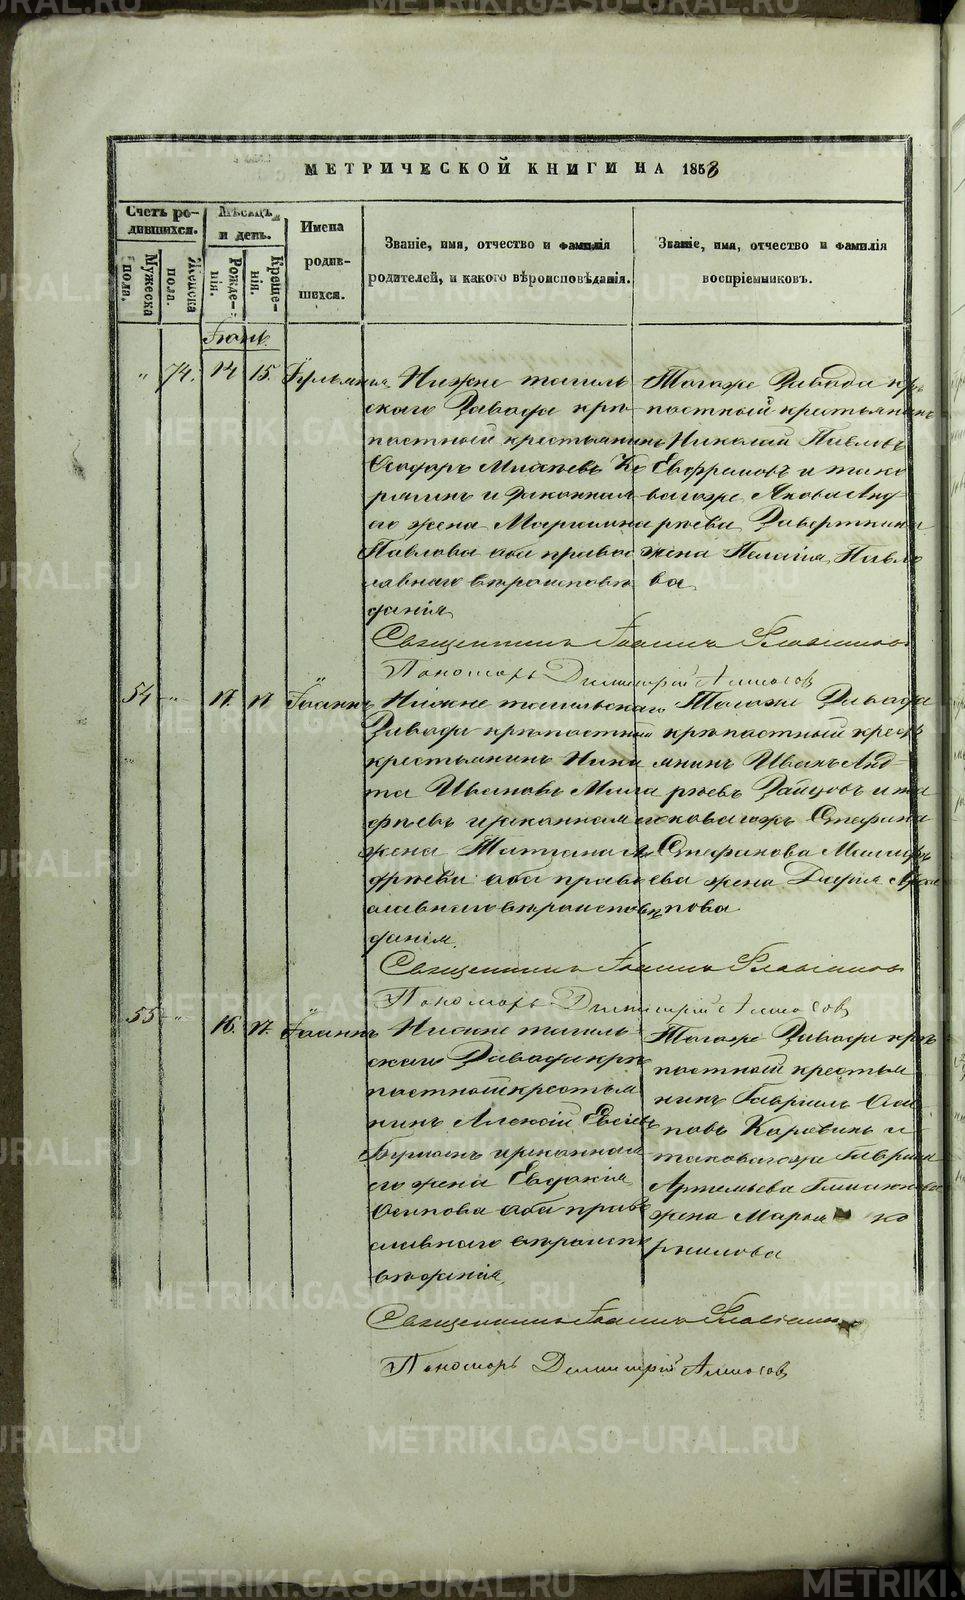 МЕТРИЧЕСКОЙ КНИГИ НА 1858
Счетъ ро-
дившихся.
Мужеска
пола.
Женска
пола.
Мѣсяцъ
и день.
Рожде-
нія.
Креще-
нія.
Имена
родив-
шихся.
Званіе, имя, отчество и фамилія
родителей, и какого вѣроисповѣданія.
Званіе, имя, отчество и фамилія
воспріемниковъ.
Іюнь.
" 74. 14 15. Іульянія
Нижне тагиль
скаго Завода крѣ
постный крестьянинъ
Ѳеодоръ
и законная
его жена Мариамна
Павлова оба правос
лавнаго вѣроисповѣ
данія
Тогоже Завода крѣ
постный крестьянинъ
Николай Павловъ
Ефремовъ и тако
ваго же Якова Анд
рѣева
жена Пелагія Павло
ва
Священникъ Іоаннъ
Пономарь Димитрій
54 " 17. 17 Іоаннъ
Нижне тагильскаго
Завода крѣпостный
крестьянинъ Ники
та Ивановъ
и законная его
жена Татиана Ан
дрѣева оба правос
лавнаго вѣроисповѣ
данія.
Тогоже Завода
крѣпостный кресть
янинъ Иванъ Анд
рѣевъ Зайцовъ и та
коваго жъ Стефана
Стефанова
жена Дарія
пова
Священникъ Іоаннъ
Пономарь Димитрій
55 " 16. 17. Іоаннъ
Нижне тагиль
скаго Завода крѣ
постный крестья
нинъ Алексій
и законная
его жена Евдокія
Осипова оба право
славнаго вѣроиспо
вѣданія
Тогоже Завода крѣ
постный крестья
нинъ Гавріилъ Оси
повъ Каровинъ и
таковагоже Гаврила
Артемьева
жена Марья ко
рнилова
Священникъ Іоаннъ
Пономарь Димитрій
METRIKI.GASO-URAL.RU